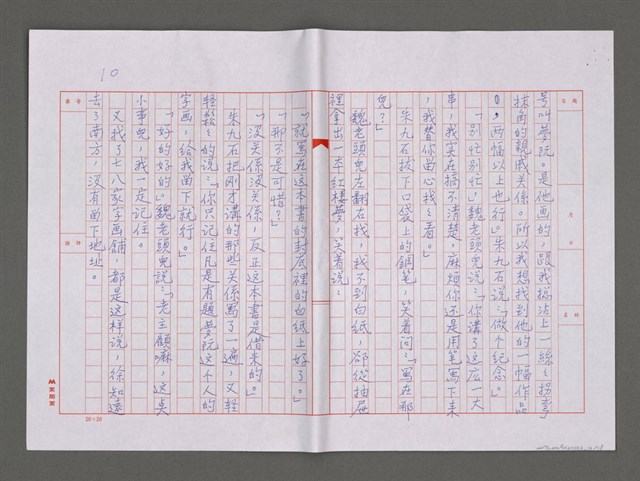 10
号叫夢阮。是他画的，跟我搞沾上一絲絲拐彎
抹角的親戚關係。所以我想找到他的一幅作品
，兩幅以上也行。」朱九石說：「做个紀念。」
「别忙别忙」魏老頭兒說：「你講了这应一大
串，我实在搞不清楚，麻煩你还是用笔写下来
，我替你留心找找看。」
朱九石拔下口袋上的鋼笔，笑着问：「写在那
兒？」
魏老頭兒左翻右找，找不到白紙，卻從抽屜
裡拿出一本紅樓夢，笑着說：
「就写在这本書的封底裡的白紙上好了。」
「那不是可惜？」
「沒关係沒关係，反正这本書是借来的。」
朱九石把刚才講的那些关係写了一遍，又輕
輕鬆鬆的說：「你只记住凡是有題夢阮这个人的
字画，給我留下就行。」
「好的好的。」魏老頭兒說：「老主顧嘛，这点
小事兒，我一定记住。
又找了七八家字画舖，都是这样說，徐知遠
去了南方，沒有留下地址。
20×20